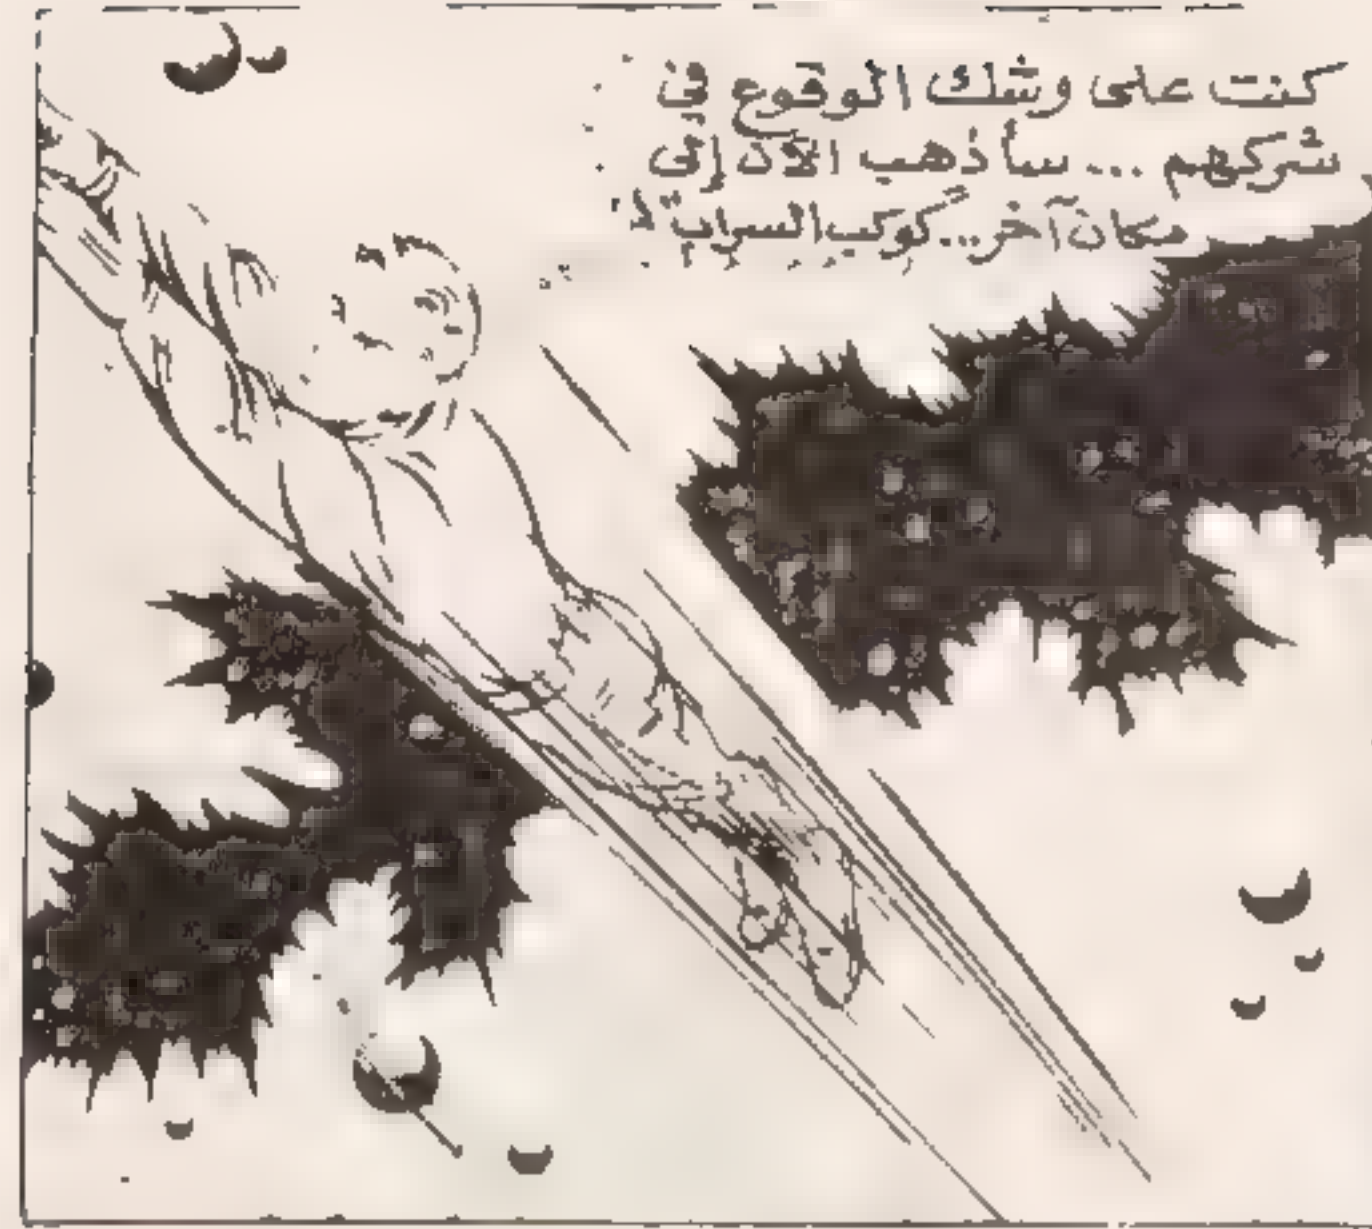 كنت على وشك الوقوع في
شركهم ... سأذهب الآن إلى
مكان آخر... كوكب السراب"!